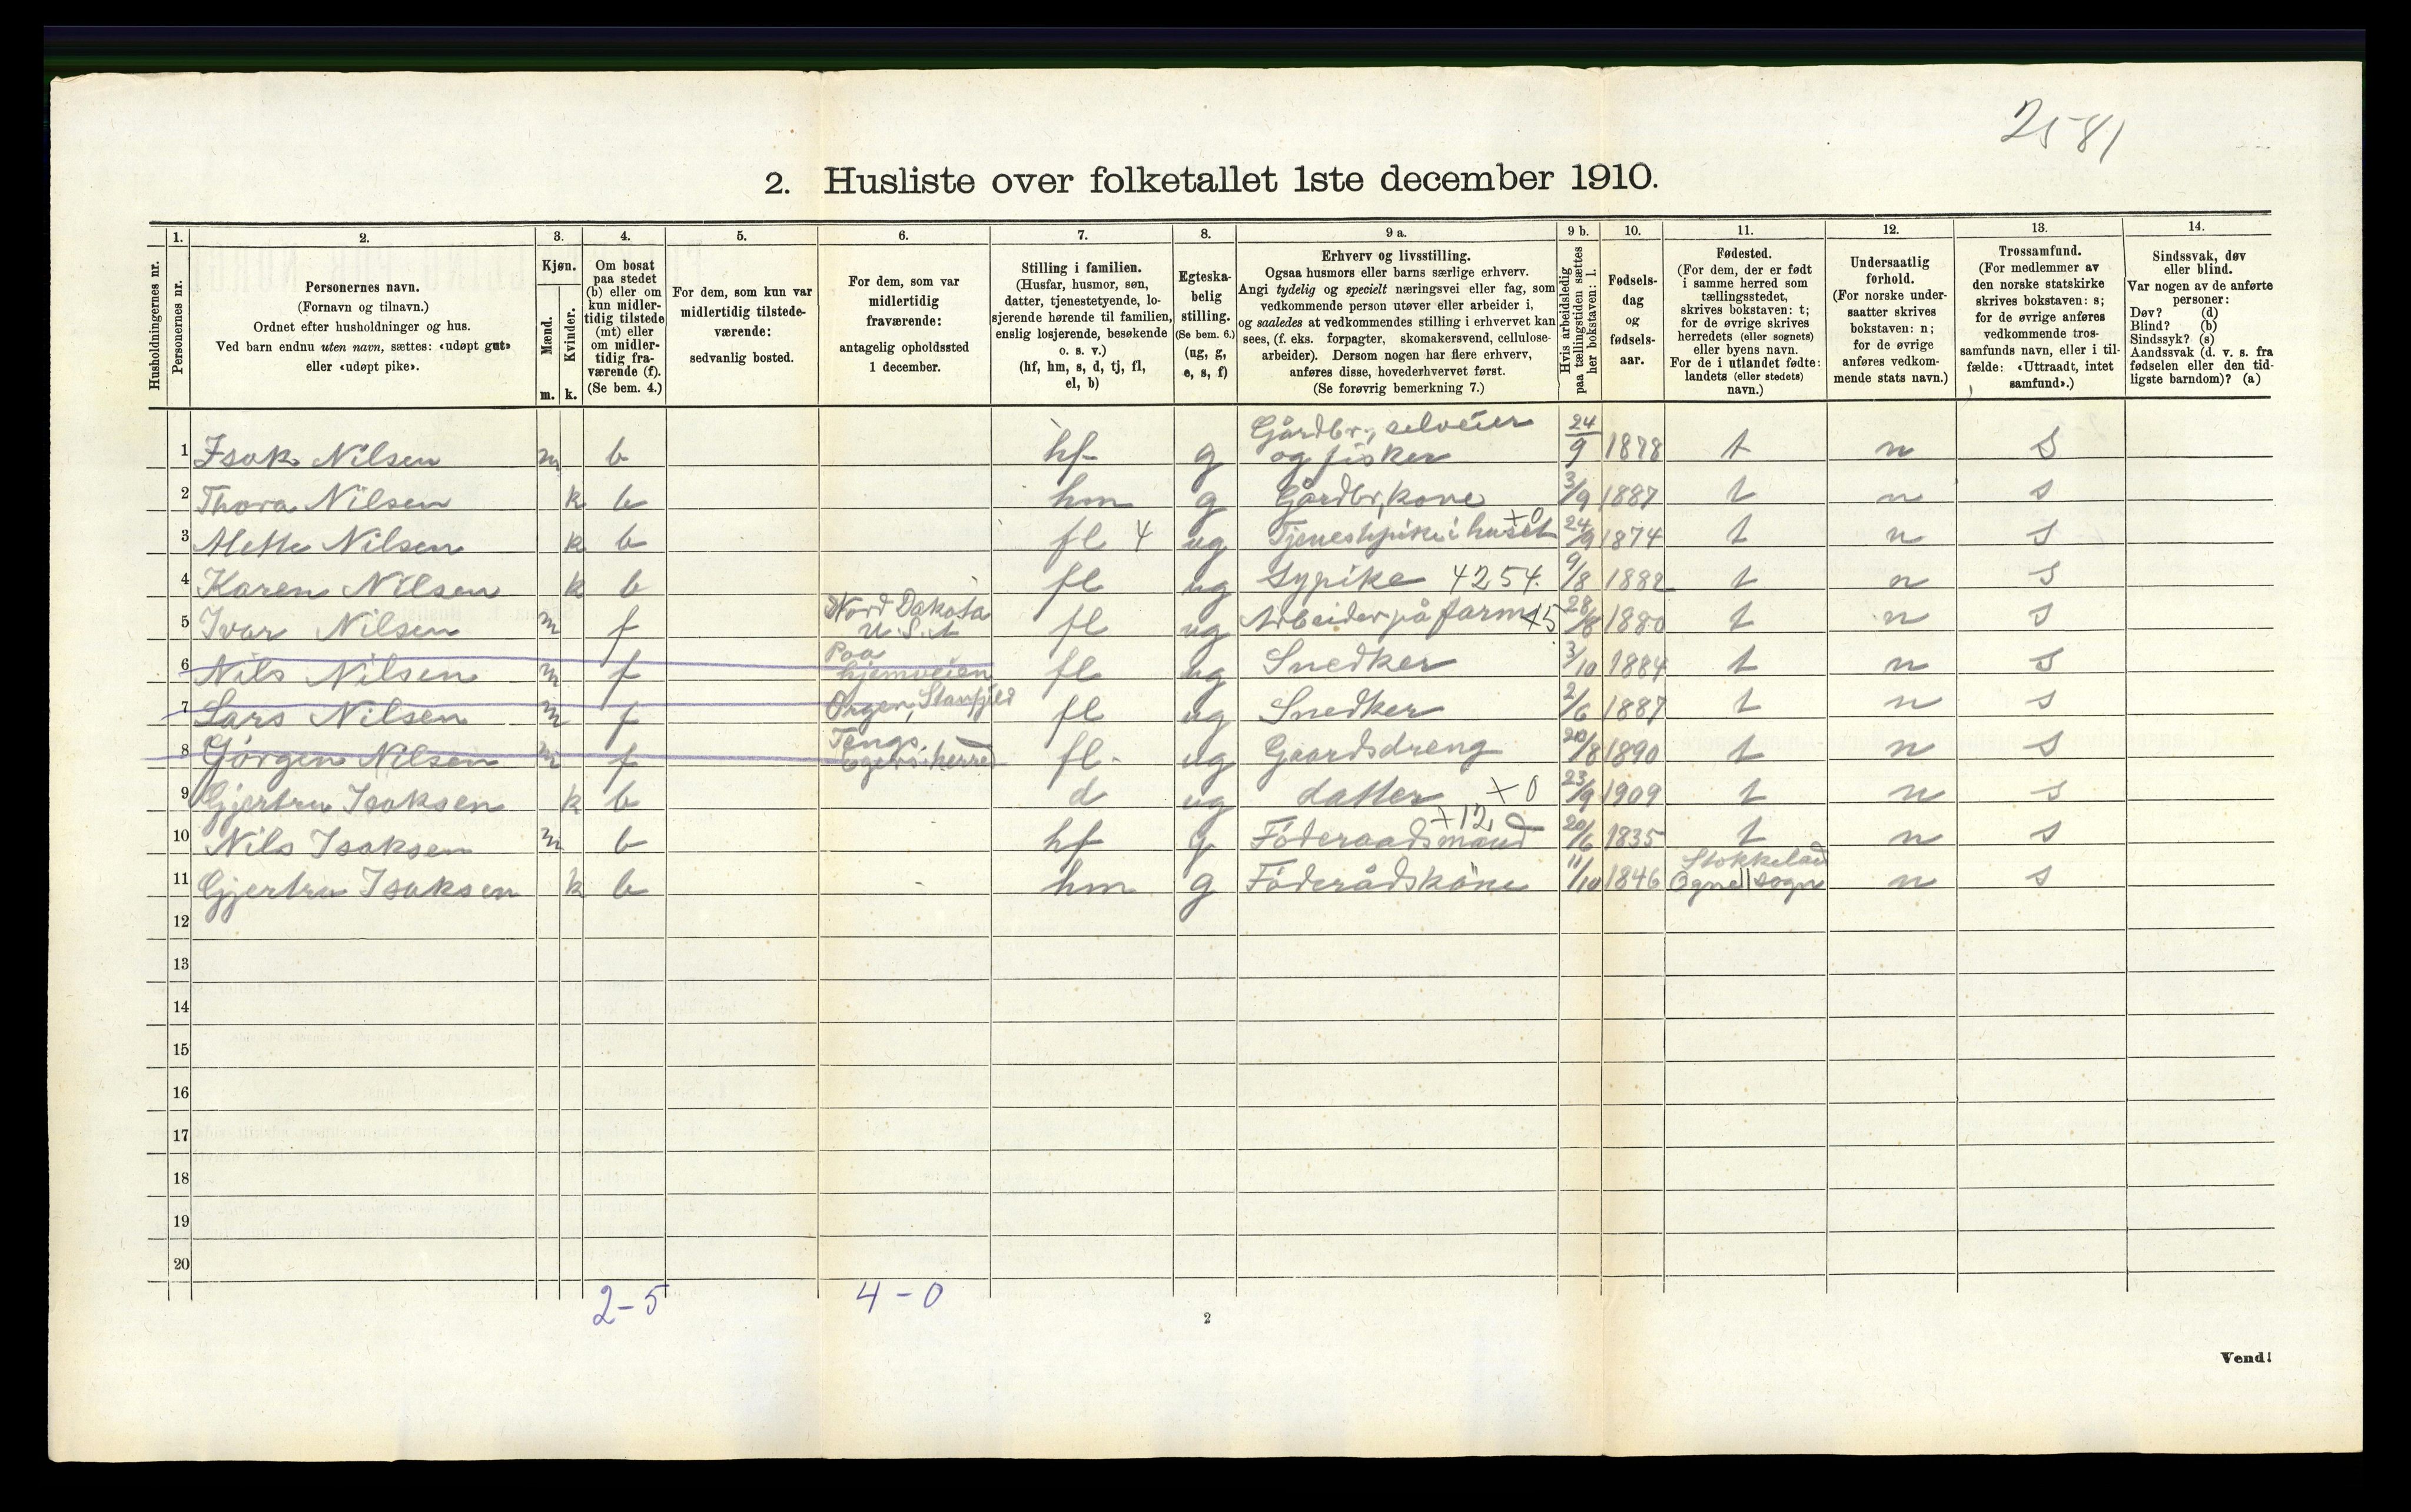 2581
2. Husliste over folketallet 1ste december 1910.
Husholdningernes nr.
1.
Personernes nr.
2.
Personernes navn.
(Fornavn og tilnavn.)
Ordnet efter husholdninger og hus.
Ved barn endnu uten navn, sættes: «udøpt gut»
eller «udøpt pike».
3.
Kjøn.
Mænd.
Kvinder.
m. k.
4.
Om bosat
paa stedet
(b) eller om
kun midler-
tidig tilstede
(mt) eller
om midler-
tidig fra-
værende (f).
(Se bem. 4.)
5.
For dem, som kun var
midlertidig tilstede-
værende:
sedvanlig bosted.
6.
For dem, som var
midlertidig
fraværende:
antagelig opholdssted
1 december.
7.
Stilling i familien.
(Husfar, husmor, søn,
datter, tjenestetyende, lo-
sjerende hørende til familien,
enslig losjerende, besøkende
o. s. v.)
(hf, hm, s, d, tj, fl,
el, b)
8.
Egteska-
belig
stilling.
(Se bem. 6.)
(ug, g,
e, s, f)
9 a.
Erhverv og livsstilling.
Ogsaa husmors eller barns særlige erhverv.
Angi tydelig og specielt næringsvei eller fag, som
vedkommende person utøver eller arbeider i,
og saaledes at vedkommendes stilling i erhvervet kan
sees, (f. eks. forpagter, skomakersvend, cellulose-
arbeider). Dersom nogen har flere erhverv,
anføres disse, hovederhvervet først.
(Se forøvrig bemerkning 7.)
9 b.
Hvis arbeidsledig
paa tællingstiden sættes
her bokstaven: l.
10.
Fødsels-
dag
og
fødsels-
aar.
11.
Fødested.
(For dem, der er født
i samme herred som
tællingsstedet,
skrives bokstaven: t;
for de øvrige skrives
herredets (eller sognets)
eller byens navn.
For de i utlandet fødte:
landets (eller stedets)
navn.)
12.
Undersaatlig
forhold.
(For norske under-
saatter skrives
bokstaven: n;
for de øvrige
anføres vedkom-
mende stats navn.)
13.
Trossamfund.
(For medlemmer av
den norske statskirke
skrives bokstaven: s;
for de øvrige anføres
vedkommende tros-
samfunds navn, eller i til-
fælde: «Uttraadt, intet
samfund».)
14.
Sindssvak, døv
eller blind.
Var nogen av de anførte
personer:
Døv? (d)
Blind? (b)
Sindssyk? (s)
Aandssvak (d. v. s. fra
fødselen eller den tid-
ligste barndom)? (a)
1 Isak Nilsen m b hf g Gårdbr., selveier og fisker 24/9 1878 t n s
2 Thora Nilsen k b hm g Gårdbr, kone 3/9 1887 t n s
3 Mette Nilsen k b fl 4 ug Tjenestpike i huset +0 24/9 1874 t n s
4 Karen Nilsen k b fl ug Sypike 4254. 9/8 1882 t n s
5 Ivar Nilsen m f Nord Dakota U.S.A fl ug Arbeider på farm 45 28/8 1880 t n s
6 Nils Nilsen m f Paa hjemveien fl ug Snedker 3/10 1884 t n s
7 Lars Nilsen m f fl ug Snedker 2/6 1887 t n s
8 Gjørgen Nilsen m f Tengs, Egers. herred fl. ug Gaardsdreng 20/8 1890 t n s
9 Gjertru Isaksen k b d ug datter +0 23/9 1909 t n s
10 Nils Isaksen m b hf g Føderaadsmand +12,0 20/6 1835 t n s
11 Gjertru Isaksen k b hm g Føderådskone 11/10 1846 Ogne sogn n s
12
13
14
15
16
17
18
19
20
2-5 4-0
2
Vend!